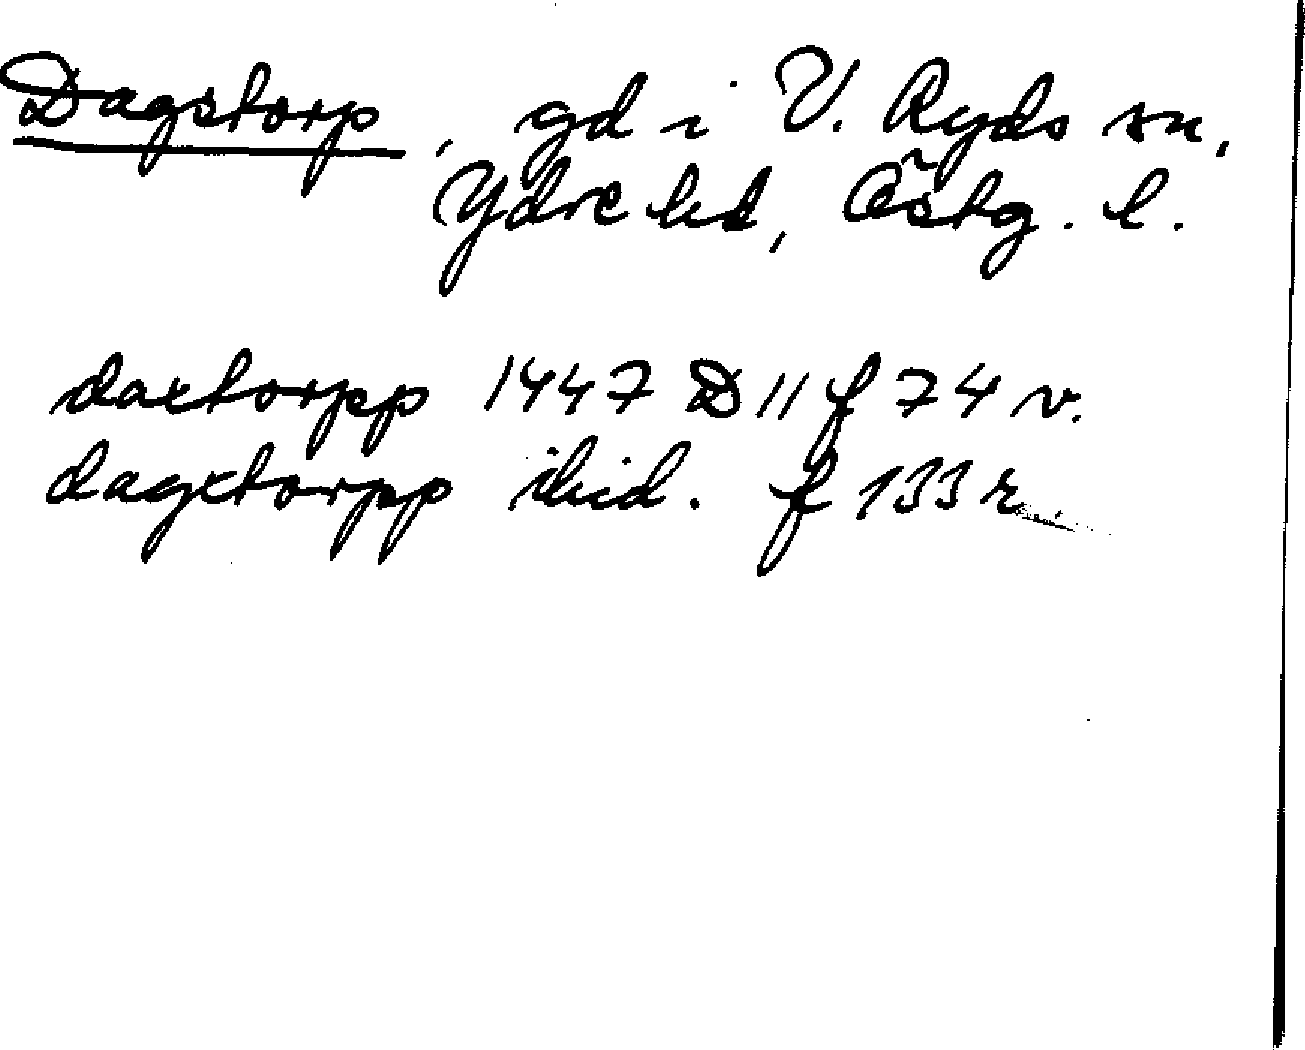 Dagstorp, gd i V. Ryds sn,
Ydre hd, Östg. l.
daxtorpp 1447 D 11 f 74 v.
dagxtorpp ibid. f 133 r